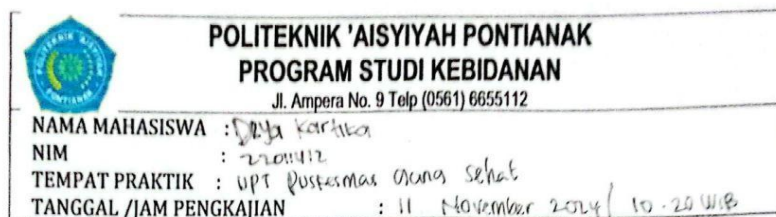 POLITEKNIK 'AISYIYAH PONTIANAK
PROGRAM STUDI KEBIDANAN
Jl. Ampera No. 9 Telp (0561) 6655112
NAMA MAHASISWA : Kartika
NIM :
TEMPAT PRAKTIK : UPT Puskesmas sehat
TANGGAL /JAM PENGKAJIAN : 11 November 2024 / 10.20 WIB